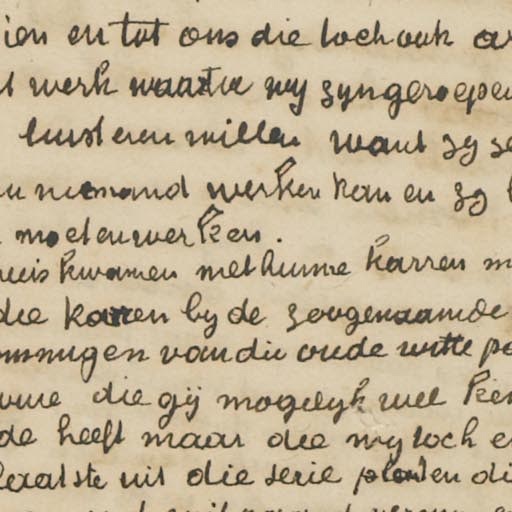 ien en tot ons die toch ook ar
t werk waartoe wy zyn geroepen
luisteren willen want zy ze
u niemand werken kan en zo
moeten werken.
huis kwamen met hunne karren m
die karren by de zoogenaamde
ommigen van die oude witte po
uwe die gij mogelyk wel ken
de heeft maar die wy toch e
laatste uit die serie platen di